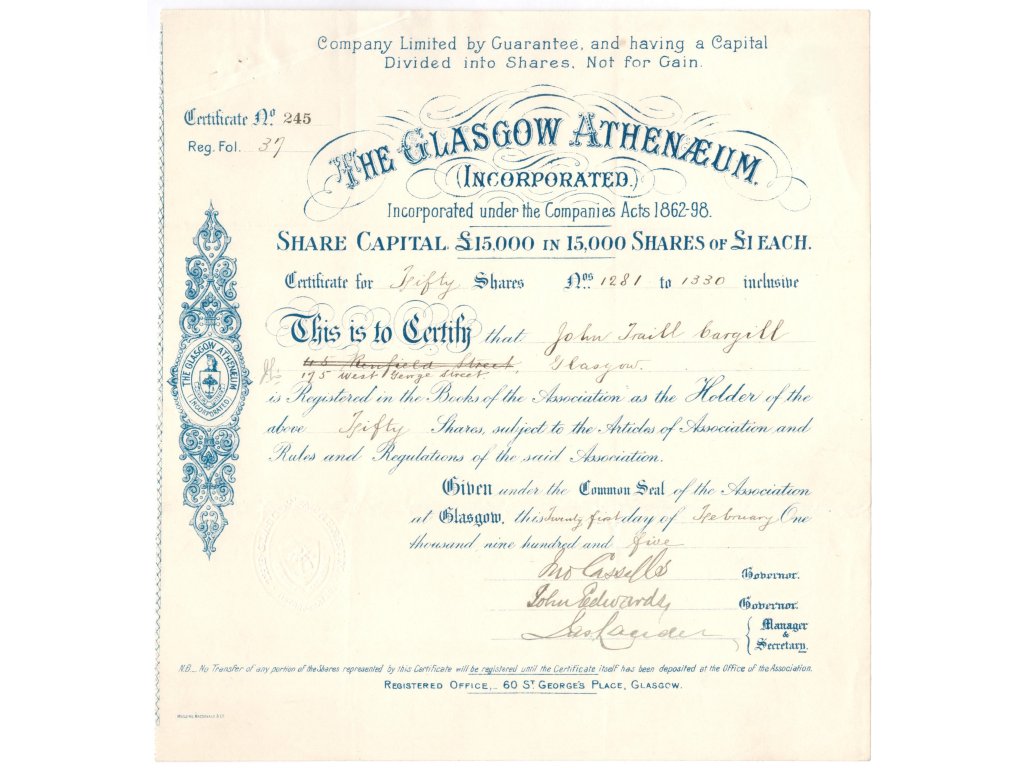 Company Limited by Guarantee, and having a Capital
Divided into Shares, Not for Gain.
Certificate No. 245
Reg. Fol. 37
THE GLASGOW ATHENÆUM.
(INCORPORATED.)
Incorporated under the Companies Acts 1862-98.
SHARE CAPITAL. £15,000 IN 15,000 SHARES OF £1 EACH.
Certificate for Fifty Shares Nos. 1281 to 1330 inclusive
This is to Certify that John Traill Cargill
45 Renfield Street, Glasgow.
175 West George Street.
is Registered in the Books of the Association as the Holder of the
above Fifty Shares, subject to the Articles of Association and
Rules and Regulations of the said Association.
THE GLASGOW ATHENÆUM
INCORPORATED.
Given under the Common Seal of the Association
at Glasgow, this Twenty first day of February One
thousand nine hundred and five
Jno Cassells Governor.
John Edwards, Governor.
Jas Lauder Manager
&
Secretary.
N.B._ No Transfer of any portion of the Shares represented by this Certificate will be registered until the Certificate itself has been deposited at the Office of the Association.
REGISTERED OFFICE,_ 60 ST GEORGE'S PLACE, GLASGOW.